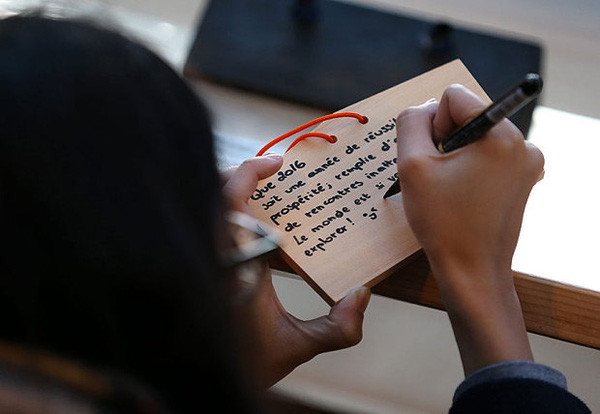 Que 2016
soit une année de
prospérité, remplie
de rencontres
Le monde est si
explorer ! :)